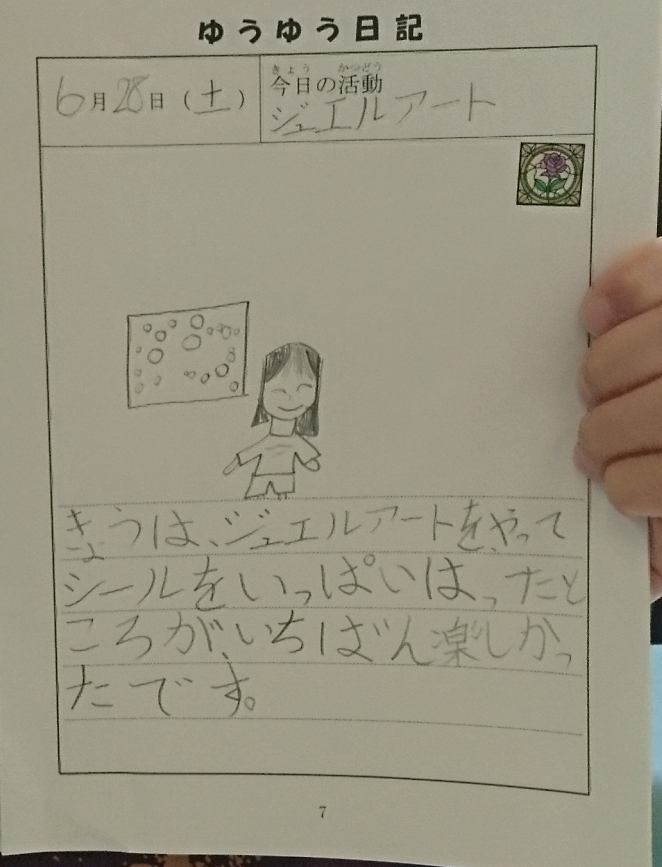 ゆうゆう日記
6月28日（土）
きょう かつどう
今日の活動
ジュエルアート
きょうは、ジュエルアートをやって
シールをいっぱいはったと
ころが、いちばん楽しかっ
たです。
7